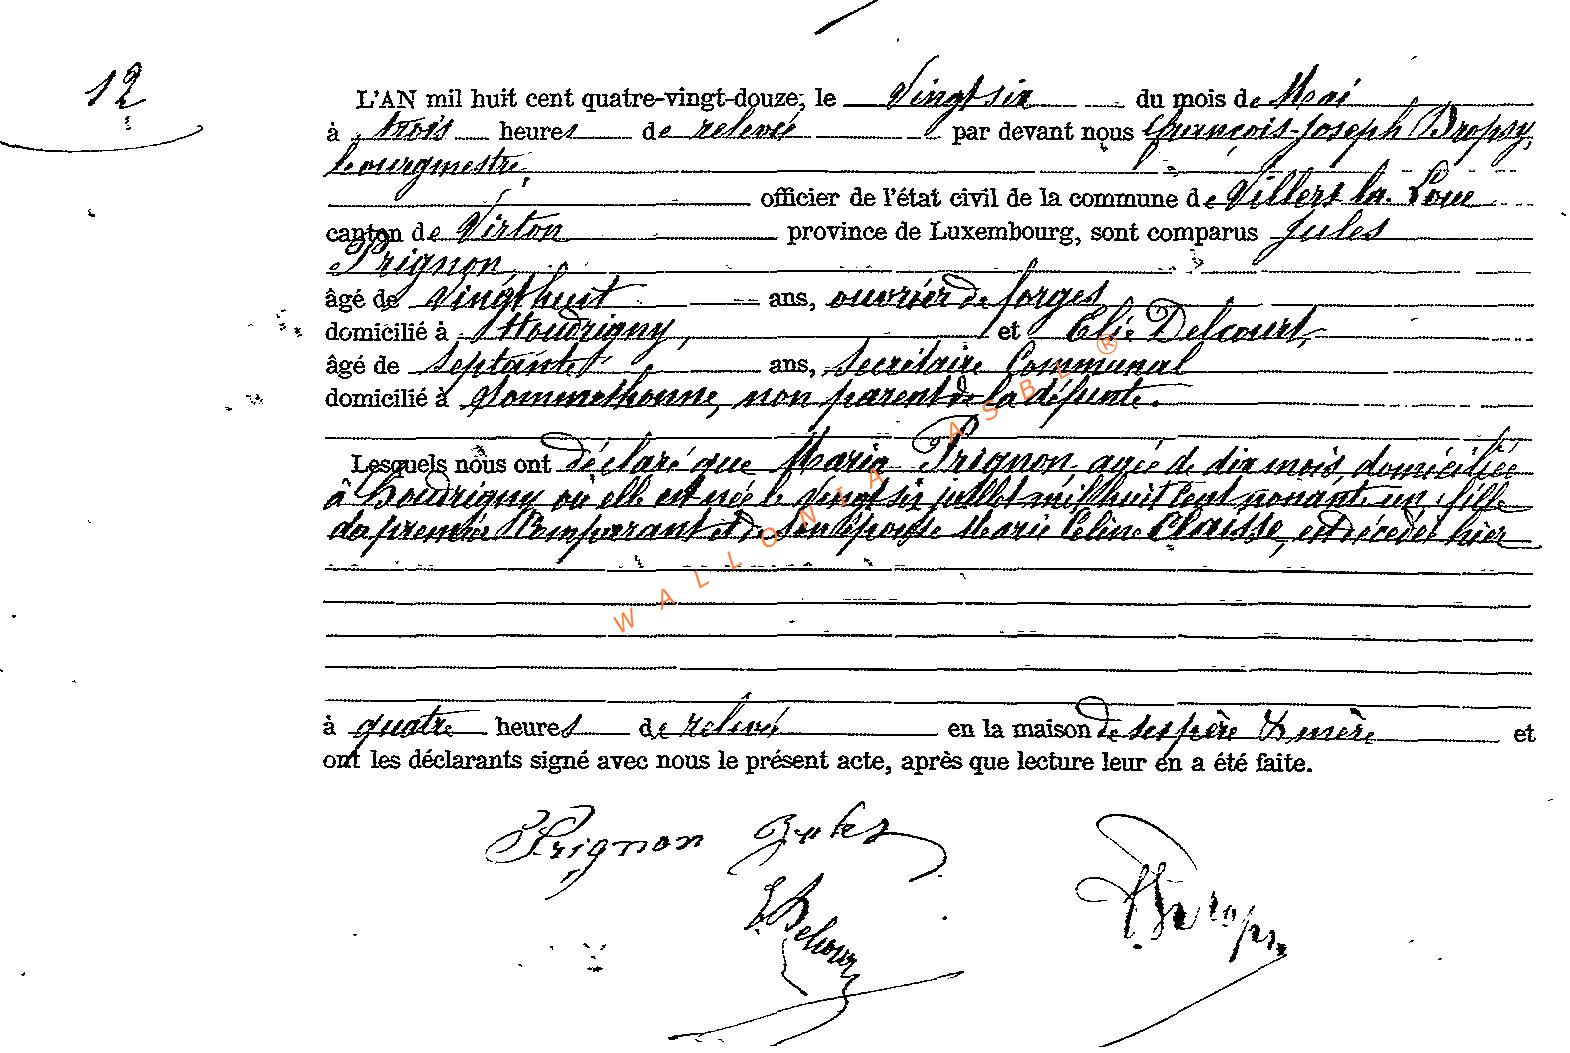 12
L'AN mil huit cent quatre-vingt-douze, le Vingt six du mois de Mai
à trois heures de relevée par devant nous François-Joseph Dropsy,
bourgmestre,
officier de l'état civil de la commune de Villers la Loue
canton de Virton province de Luxembourg, sont comparus Jules
Prignon,
âgé de vingt huit ans, ouvrier de forges
domicilié à Houdrigny, et Elie Delcourt,
âgé de septante ans, secrétaire Communal
domicilié à Sommethonne, non parent de la défunte.
Lesquels nous ont déclaré que Maria Prignon agée de dix mois, domiciliée
à houdrigny où elle est née le vingt six juillet mil huit cent nonante un, fille
du premier Comparant et de son épouse Marie Céline Claisse, est décédée hier
à quatre heures de relevée en la maison de ses père & mère et
ont les déclarants signé avec nous le présent acte, après que lecture leur en a été faite.
Prignon Jules
E. Delcour
Dropsy
WALLONIA ASBL ®